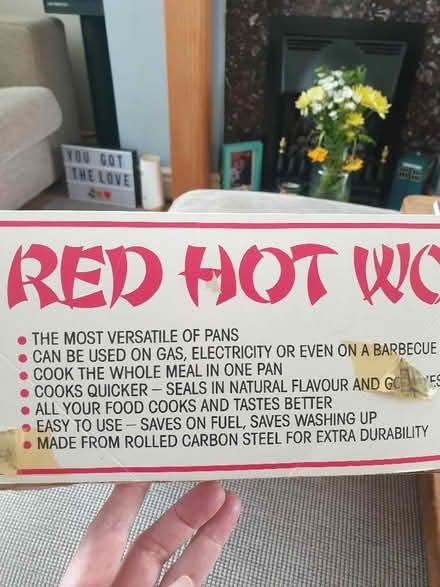 YOU GOT
THE LOVE
RED HOT WO
● THE MOST VERSATILE OF PANS
● CAN BE USED ON GAS, ELECTRICITY OR EVEN ON A BARBECUE
● COOK THE WHOLE MEAL IN ONE PAN
● COOKS QUICKER – SEALS IN NATURAL FLAVOUR AND
● ALL YOUR FOOD COOKS AND TASTES BETTER
● EASY TO USE – SAVES ON FUEL, SAVES WASHING UP
● MADE FROM ROLLED CARBON STEEL FOR EXTRA DURABILITY